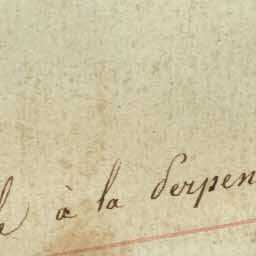 le à la Serpen